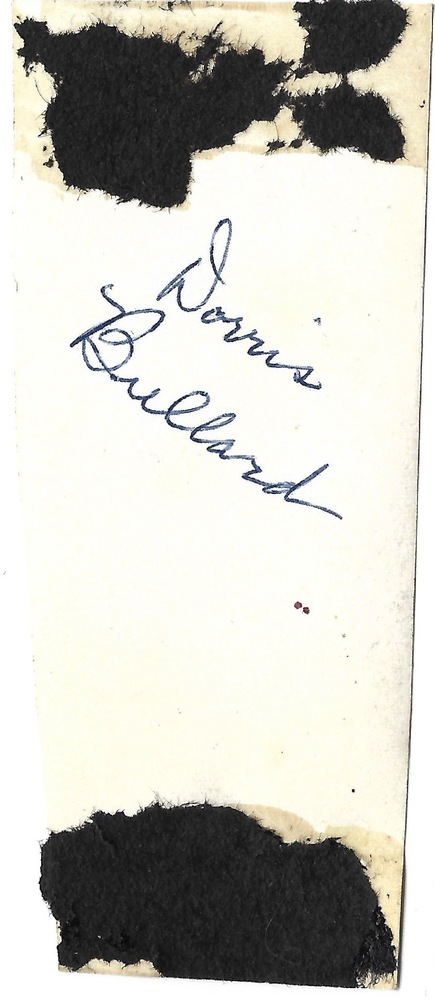 Dorris
Bullard